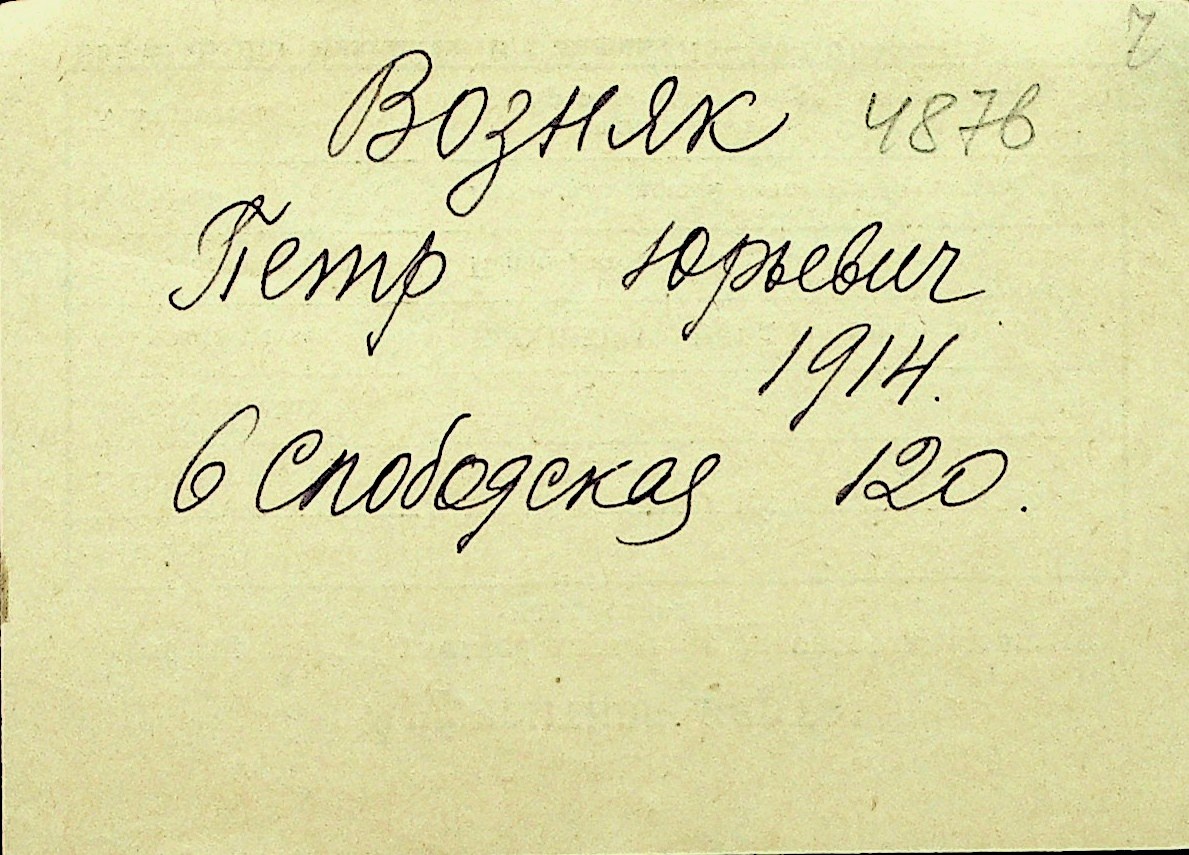 Возняк 4876
Петр Юрьевич
1914.
6 Слободская 120.